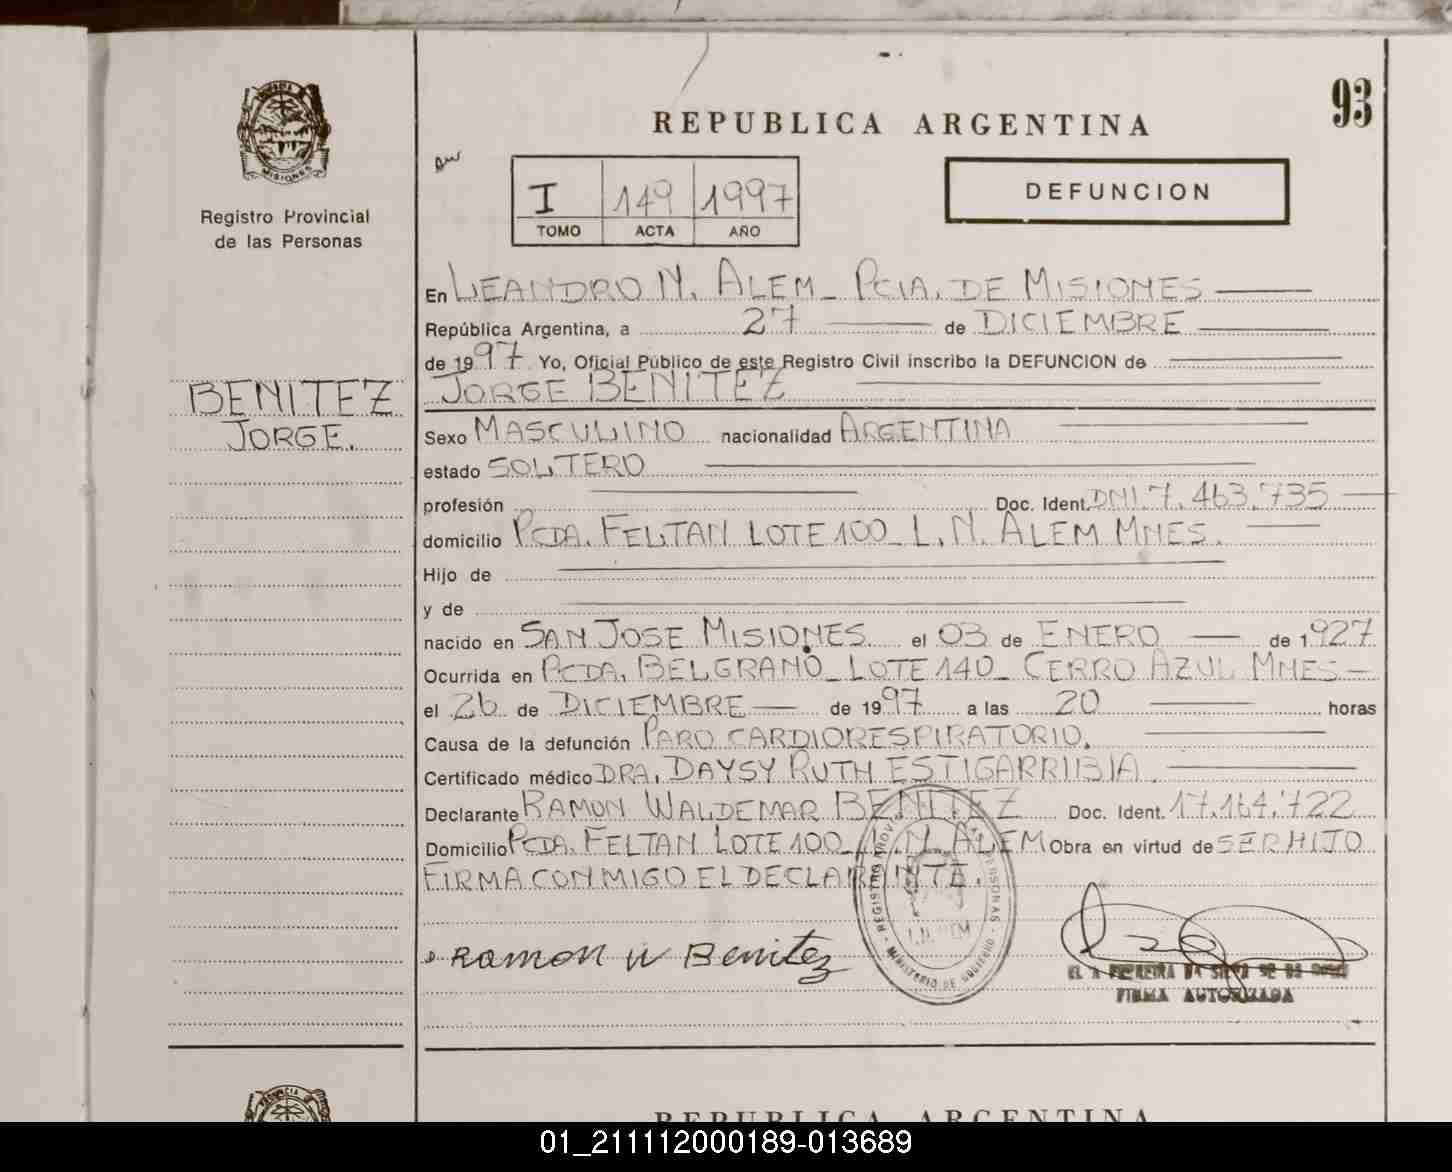 93
REPUBLICA ARGENTINA
MISIONES
Registro Provincial
de las Personas
I 149 1997
TOMO ACTA AÑO
DEFUNCION
En LEANDRO N. ALEM_ PCIA. DE MISIONES
República Argentina, a 27 de DICIEMBRE
de 1997 Yo, Oficial Público de este Registro Civil inscribo la DEFUNCION de
JORGE BENITEZ
BENITEZ
JORGE.
Sexo MASCULINO nacionalidad ARGENTINA
estado SOLTERO
profesión Doc. Ident. DNI. 7.463.735
domicilio PCDA. FELTAN LOTE 100_ L.N. ALEM MNES.
Hijo de
y de
nacido en SAN JOSE MISIONES el 03 de ENERO de 1927
Ocurrida en PCDA. BELGRANO_ LOTE 140_ CERRO AZUL MNES
el 26 de DICIEMBRE de 1997 a las 20 horas
Causa de la defunción PARO CARDIORESPIRATORIO.
Certificado médico DRA. DAYSY RUTH ESTIGARRIBIA
Declarante RAMON WALDEMAR BENITEZ Doc. Ident. 17.164.722
Domicilio PCDA. FELTAN LOTE 100_ L.N. ALEM Obra en virtud de SER HIJO
FIRMA CONMIGO EL DECLARANTE.
Ramon W Benitez
MINISTERIO DE GOBIERNO
FIRMA AUTORIZADA
REPUBLICA ARGENTINA
01_211112000189-013689